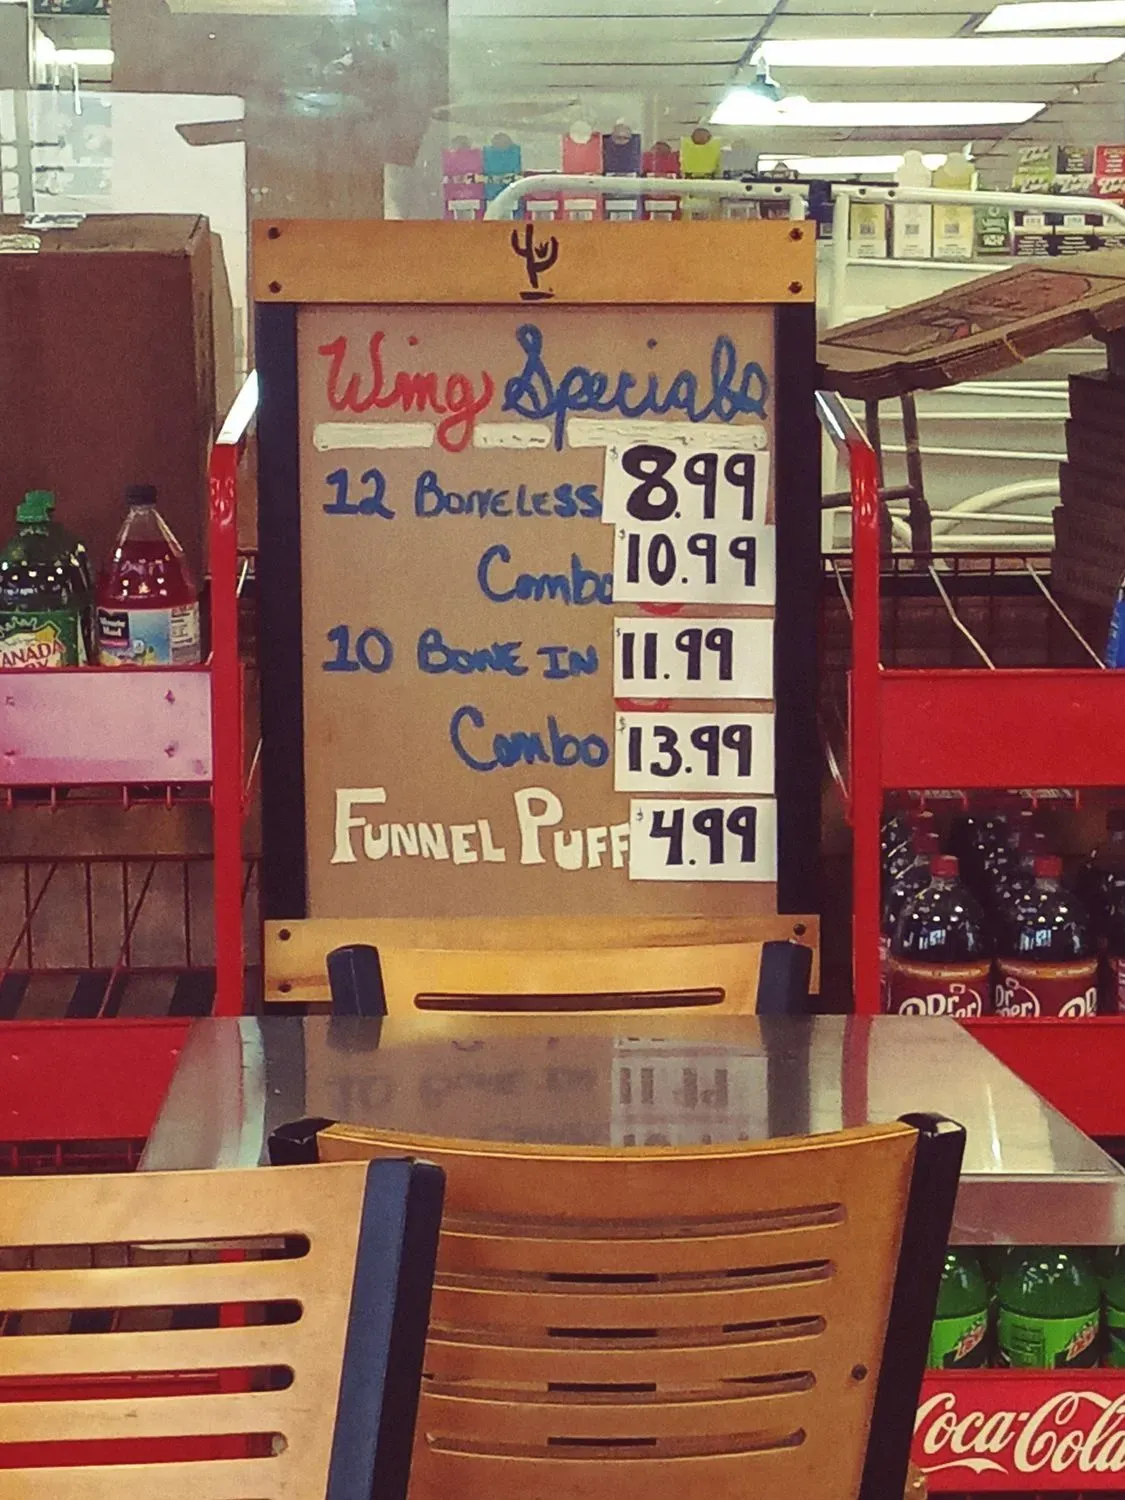 Wing Specials
12 BONELESS $8.99
Combo $10.99
10 BONE IN $11.99
Combo $13.99
FUNNEL PUFF $4.99
Minute Maid
Dr
Coca-Cola